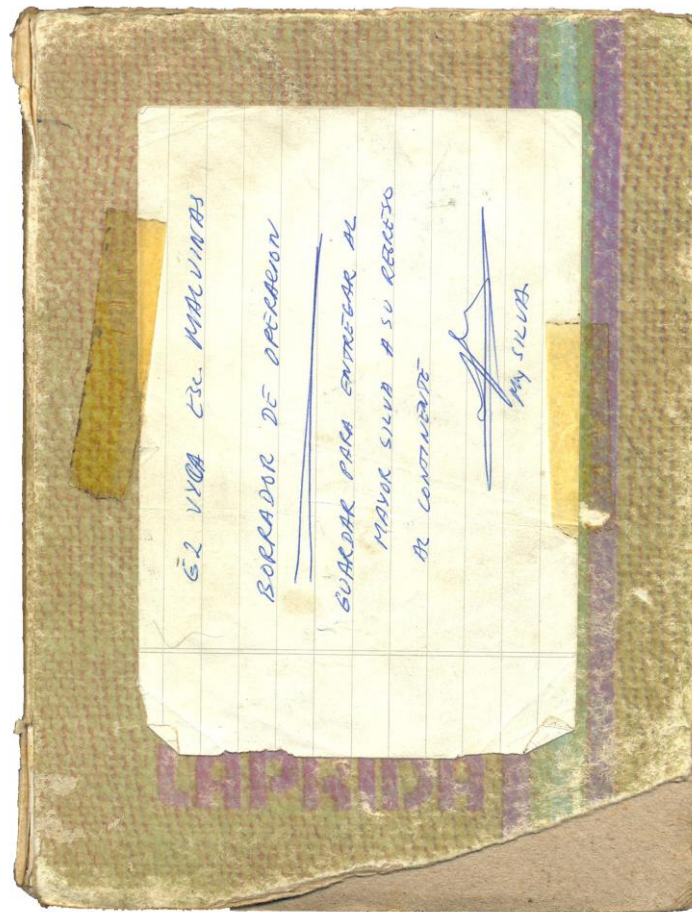 G2 VYCA ESC. MALVINAS
BORRADOR DE OPERACION
GUARDAR PARA ENTREGAR AL
MAYOR SILVA A SU REGRESO
AL CONTINENTE
My SILVA
LAPRIDA